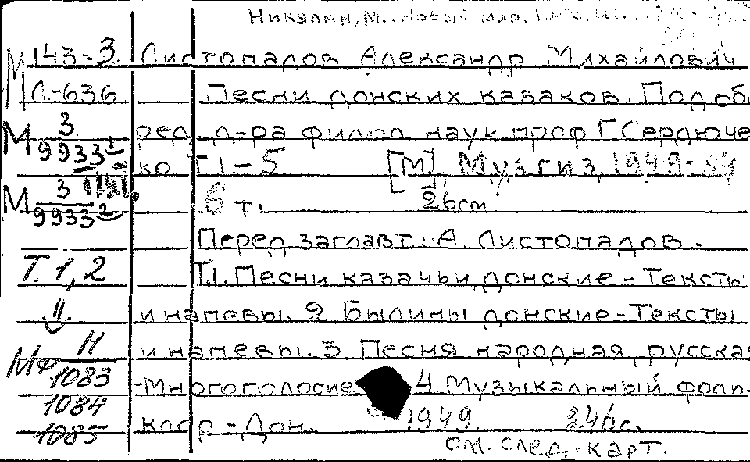 М 143-3 Листопадов Александр Михайлович
Л-636 Песни донских казаков. Под об
М 3/9933² ред. д-ра филол наук проф Г. Сердюче
ко Т 1-5 [М] Музгиз, 1949-54
М 3/9933² 6 т. 26см
Перед загл авт.: А. Листопадов.
Т. 1, 2 Т.1. Песни казачьи, донские - Тексты
и напевы. 2 Былины донские - Тексты
МФ 11/1083 и напевы. 3. Песня народная, русская
1084 - Многоголосие 4 Музыкальный фоль-
1085 клор - Дон. 1949. 246с.
см. след. карт.